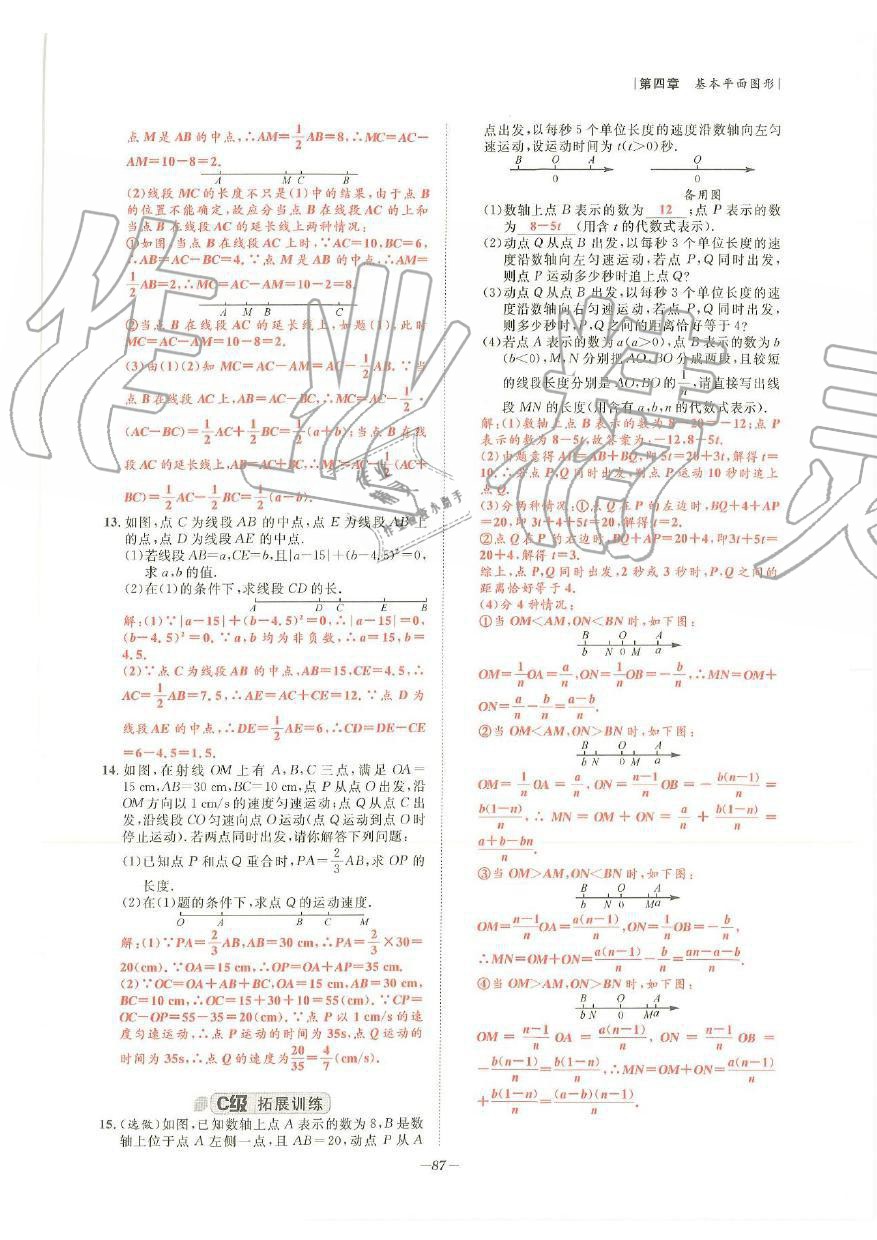 |第四章 基本平面图形|
点 M 是 AB 的中点,∴AM=1/2AB=8,∴MC=AC-
AM=10-8=2.
A M C B
(2)线段 MC 的长度不只是(1)中的结果,由于点 B
的位置不能确定,故应分当点 B 在线段 AC 的上和
当点 B 在线段 AC 的延长线上两种情况:
①如图,当点 B 在线段 AC 上时,∵AC=10,BC=6,
∴AB=AC-BC=4.∵点 M 是 AB 的中点,∴AM=
1/2AB=2,∴MC=AC-AM=10-2=8.
A M B C
②当点 B 在线段 AC 的延长线上,如题(1),此时
MC=AC-AM=10-8=2.
(3)由(1)(2)知 MC=AC-AM=AC-1/2AB.∵当
点 B 在线段 AC 上,AB=AC-BC,∴MC=AC-1/2·
(AC-BC)=1/2AC+1/2BC=1/2(a+b);当点 B 在线
段 AC 的延长线上,AB=AC+BC,∴MC=AC-1/2(AC+
BC)=1/2AC-1/2BC=1/2(a-b).
13.如图,点 C 为线段 AB 的中点,点 E 为线段 AB 上
的点,点 D 为线段 AE 的中点.
(1)若线段 AB=a,CE=b,且|a-15|+(b-4.5)²=0,
求 a,b 的值.
(2)在(1)的条件下,求线段 CD 的长.
A D C E B
解:(1)∵|a-15|+(b-4.5)²=0,∴|a-15|=0,
(b-4.5)²=0.∵a,b 均为非负数,∴a=15,b=
4.5.
(2)∵点 C 为线段 AB 的中点,AB=15,CE=4.5,∴
AC=1/2AB=7.5,∴AE=AC+CE=12.∵点 D 为
线段 AE 的中点,∴DE=1/2AE=6,∴CD=DE-CE
=6-4.5=1.5.
14.如图,在射线 OM 上有 A,B,C 三点,满足 OA=
15 cm,AB=30 cm,BC=10 cm,点 P 从点 O 出发,沿
OM 方向以 1 cm/s 的速度匀速运动;点 Q 从点 C 出
发,沿线段 CO 匀速向点 O 运动(点 Q 运动到点 O 时
停止运动).若两点同时出发,请你解答下列问题:
(1)已知点 P 和点 Q 重合时,PA=2/3AB,求 OP 的
长度.
(2)在(1)题的条件下,求点 Q 的运动速度.
O A B C M
解:(1)∵PA=2/3AB,AB=30 cm,∴PA=2/3×30=
20(cm).∵OA=15 cm,∴OP=OA+AP=35 cm.
(2)∵OC=OA+AB+BC,OA=15 cm,AB=30 cm,
BC=10 cm,∴OC=15+30+10=55(cm).∵CP=
OC-OP=55-35=20(cm).∵点 P 以 1 cm/s 的速
度匀速运动,∴点 P 运动的时间为 35s,点 Q 运动的
时间为 35s,∴点 Q 的速度为20/35=4/7(cm/s).
C级 拓展训练
15.(选做)如图,已知数轴上点 A 表示的数为 8,B 是数
轴上位于点 A 左侧一点,且 AB=20,动点 P 从 A
点出发,以每秒 5 个单位长度的速度沿数轴向左匀
速运动,设运动时间为 t(t>0)秒.
B O A O
0 0
备用图
(1)数轴上点 B 表示的数为 12 ;点 P 表示的数
为 8-5t (用含 t 的代数式表示).
(2)动点 Q 从点 B 出发,以每秒 3 个单位长度的速
度沿数轴向左匀速运动,若点 P,Q 同时出发,
则点 P 运动多少秒时追上点 Q?
(3)动点 Q 从点 B 出发,以每秒 3 个单位长度的速
度沿数轴向右匀速运动,若点 P,Q 同时出发,
则多少秒时,P,Q 之间的距离恰好等于 4?
(4)若点 A 表示的数为 a(a>0),点 B 表示的数为 b
(b<0),M,N 分别把 AO,BO 分成两段,且较短
的线段长度分别是 AO,BO 的1/n,请直接写出线
段 MN 的长度(用含有 a,b,n 的代数式表示).
解:(1)数轴上点 B 表示的数为 8-20=-12;点 P
表示的数为 8-5t,故答案为:-12,8-5t.
(2)由题意得AP=AB+BQ,即5t=20+3t,解得 t=
10.∴若点 P,Q 同时出发,则点 P 运动 10 秒时追上
点 Q.
(3)分两种情况:①点 Q 在 P 的左边时,BQ+4+AP
=20,即 3t+4+5t=20,解得 t=2.
②点 Q 在 P 的右边时,BQ+AP=20+4,即3t+5t=
20+4,解得 t=3.
综上,点 P,Q 同时出发,2 秒或 3 秒时,P,Q 之间的
距离恰好等于 4.
(4)分 4 种情况:
①当 OM<AM,ON<BN 时,如下图:
B O A
b N 0 M a
OM=1/nOA=a/n,ON=1/nOB=-b/n,∴MN=OM+
ON=a/n-b/n=(a-b)/n.
②当 OM<AM,ON>BN 时,如下图:
B O A
b N 0 M a
OM=1/nOA=a/n,ON=(n-1)/nOB=-b(n-1)/n=
b(1-n)/n,∴MN=OM+ON=a/n+b(1-n)/n=
(a+b-bn)/n.
③当 OM>AM,ON<BN 时,如下图:
B O A
b N 0 Ma
OM=(n-1)/nOA=a(n-1)/n,ON=1/nOB=-b/n,
∴MN=OM+ON=a(n-1)/n-b/n=(an-a-b)/n.
④当 OM>AM,ON>BN 时,如下图:
B O A
bN 0 Ma
OM=(n-1)/nOA=a(n-1)/n,ON=(n-1)/nOB=
-b(n-1)/n=b(1-n)/n,∴MN=OM+ON=a(n-1)/n
+b(1-n)/n=(a-b)(n-1)/n.
—87—